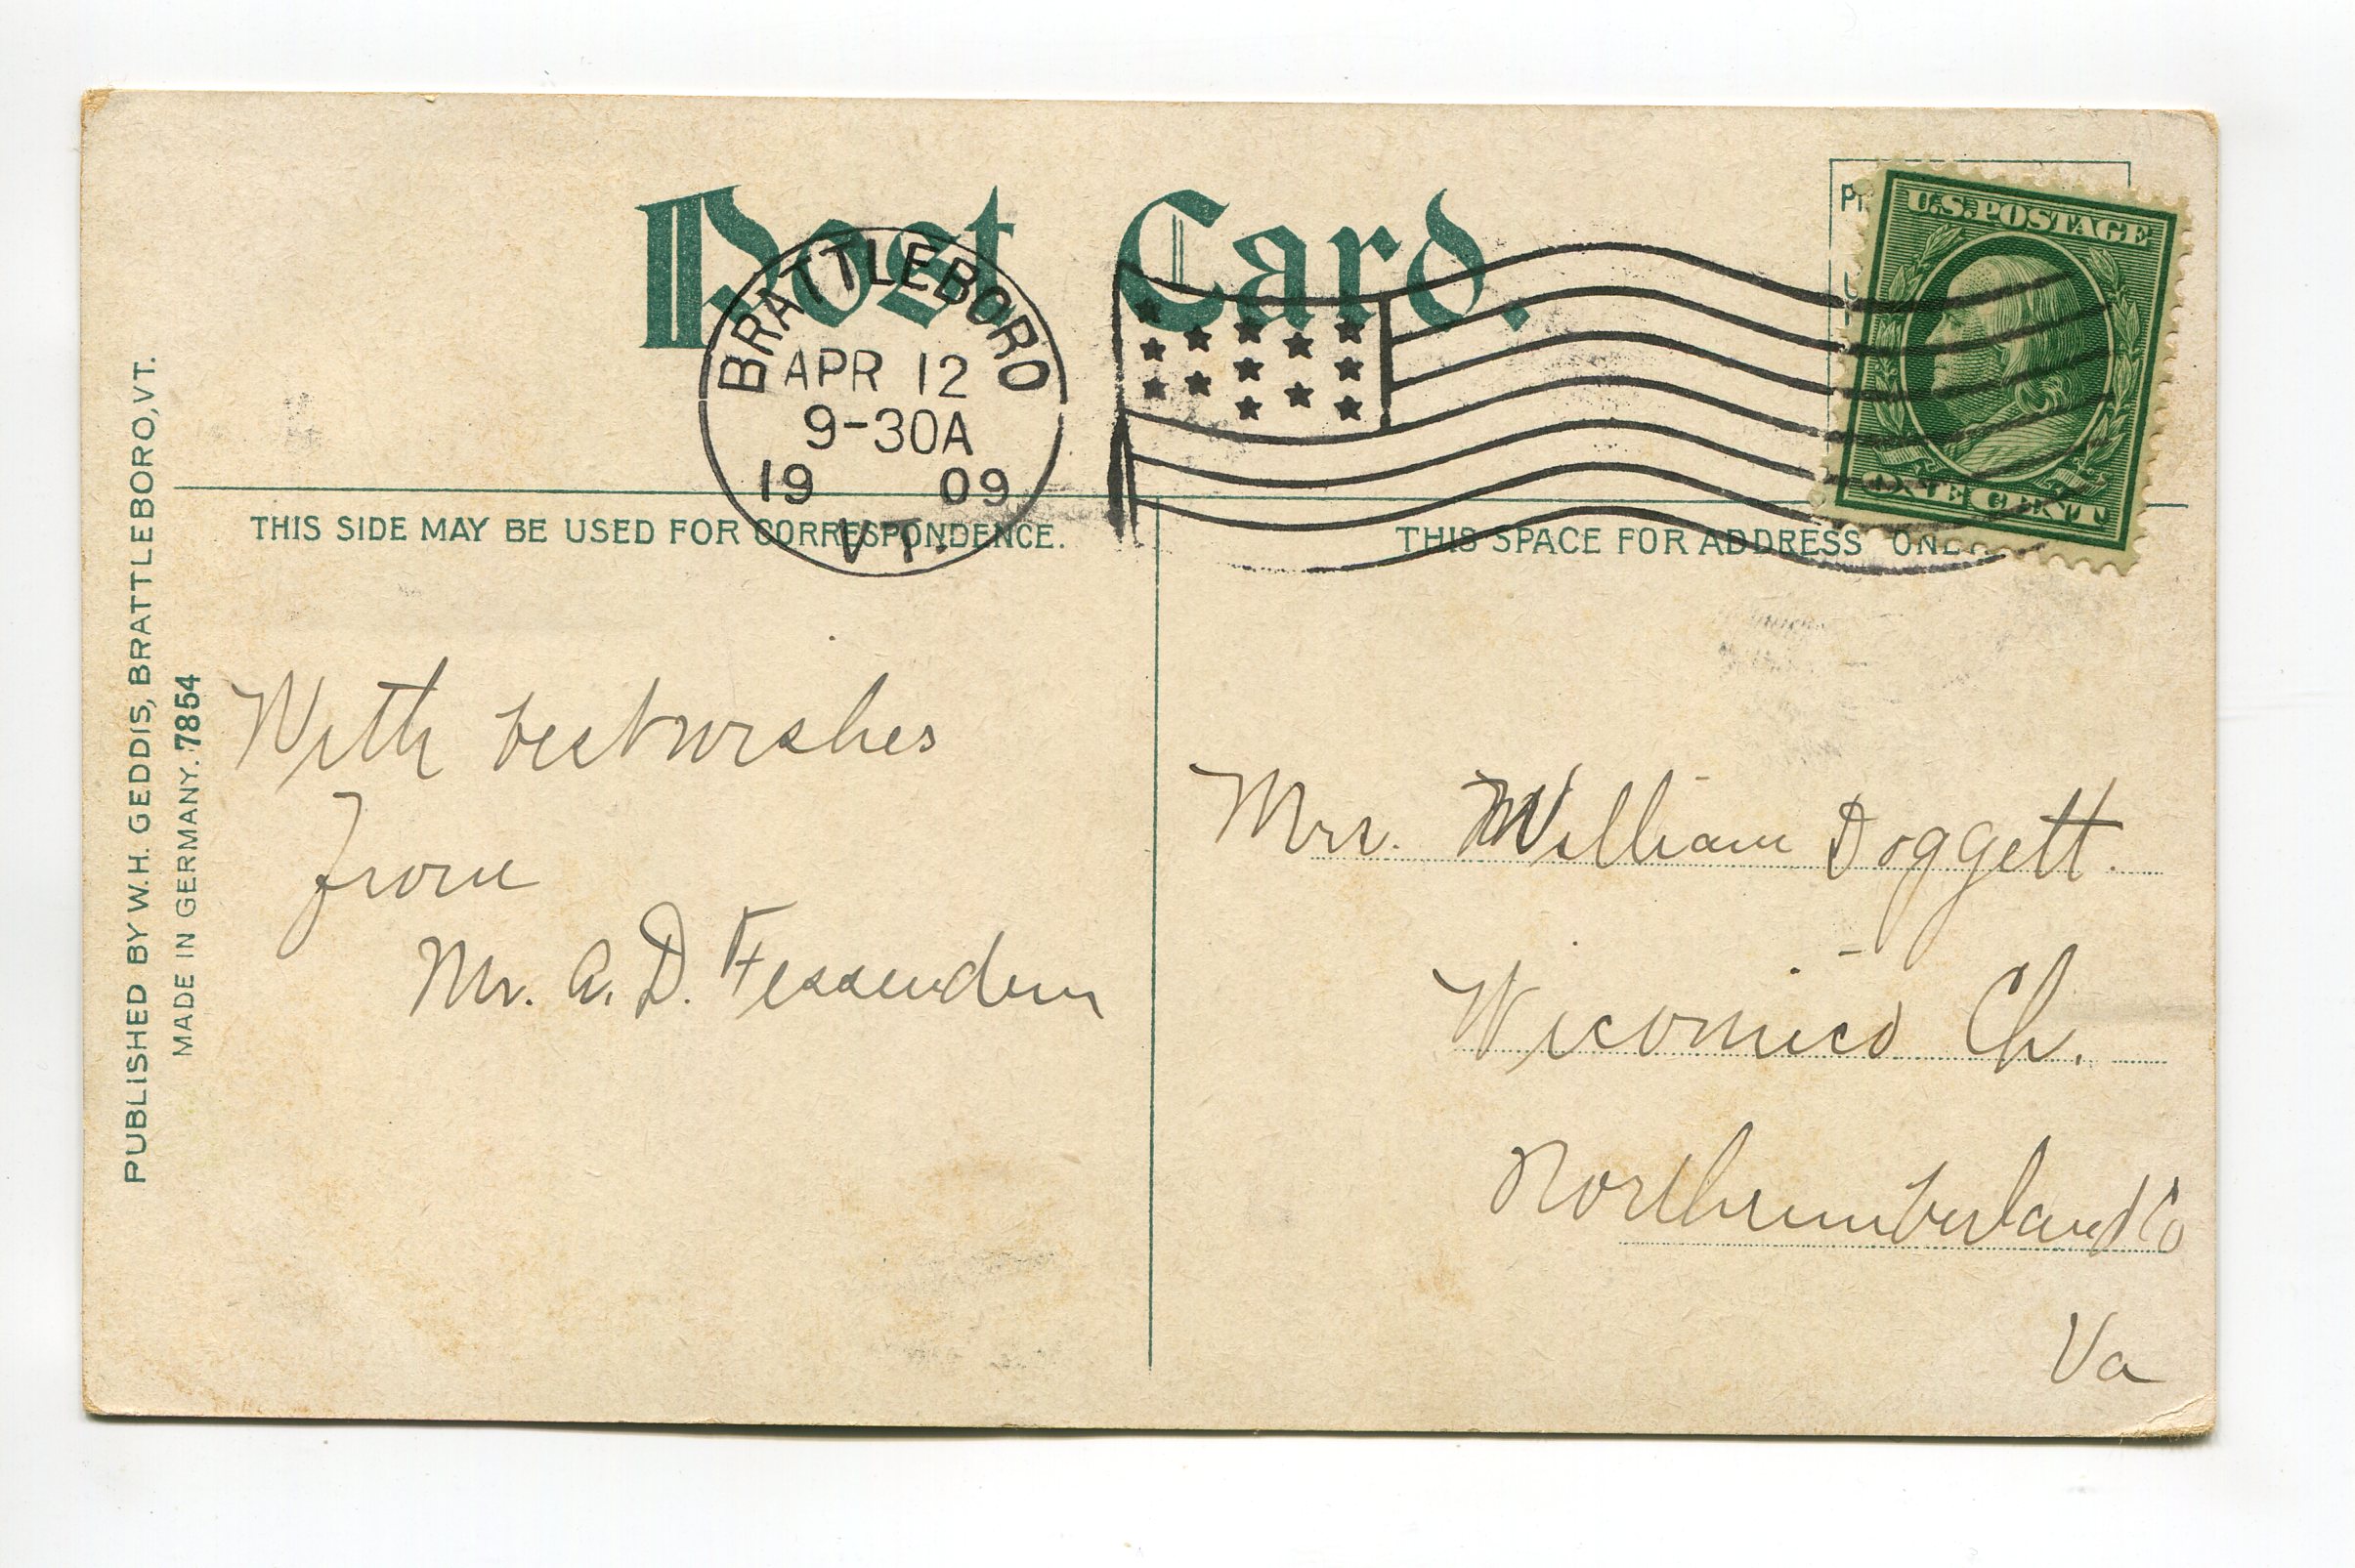 Post Card.
BRATTLEBORO
APR 12
9-30A
19 09
VT.
U.S. POSTAGE
ONE CENT
THIS SIDE MAY BE USED FOR CORRESPONDENCE.
THIS SPACE FOR ADDRESS ONLY.
PUBLISHED BY W.H. GEDDIS, BRATTLEBORO, VT.
MADE IN GERMANY. 7854
With best wishes
from
Mr. A. D. Fessenden
Mrs. William Doggett.
Wicomico Ch.
Northumberland Co
Va